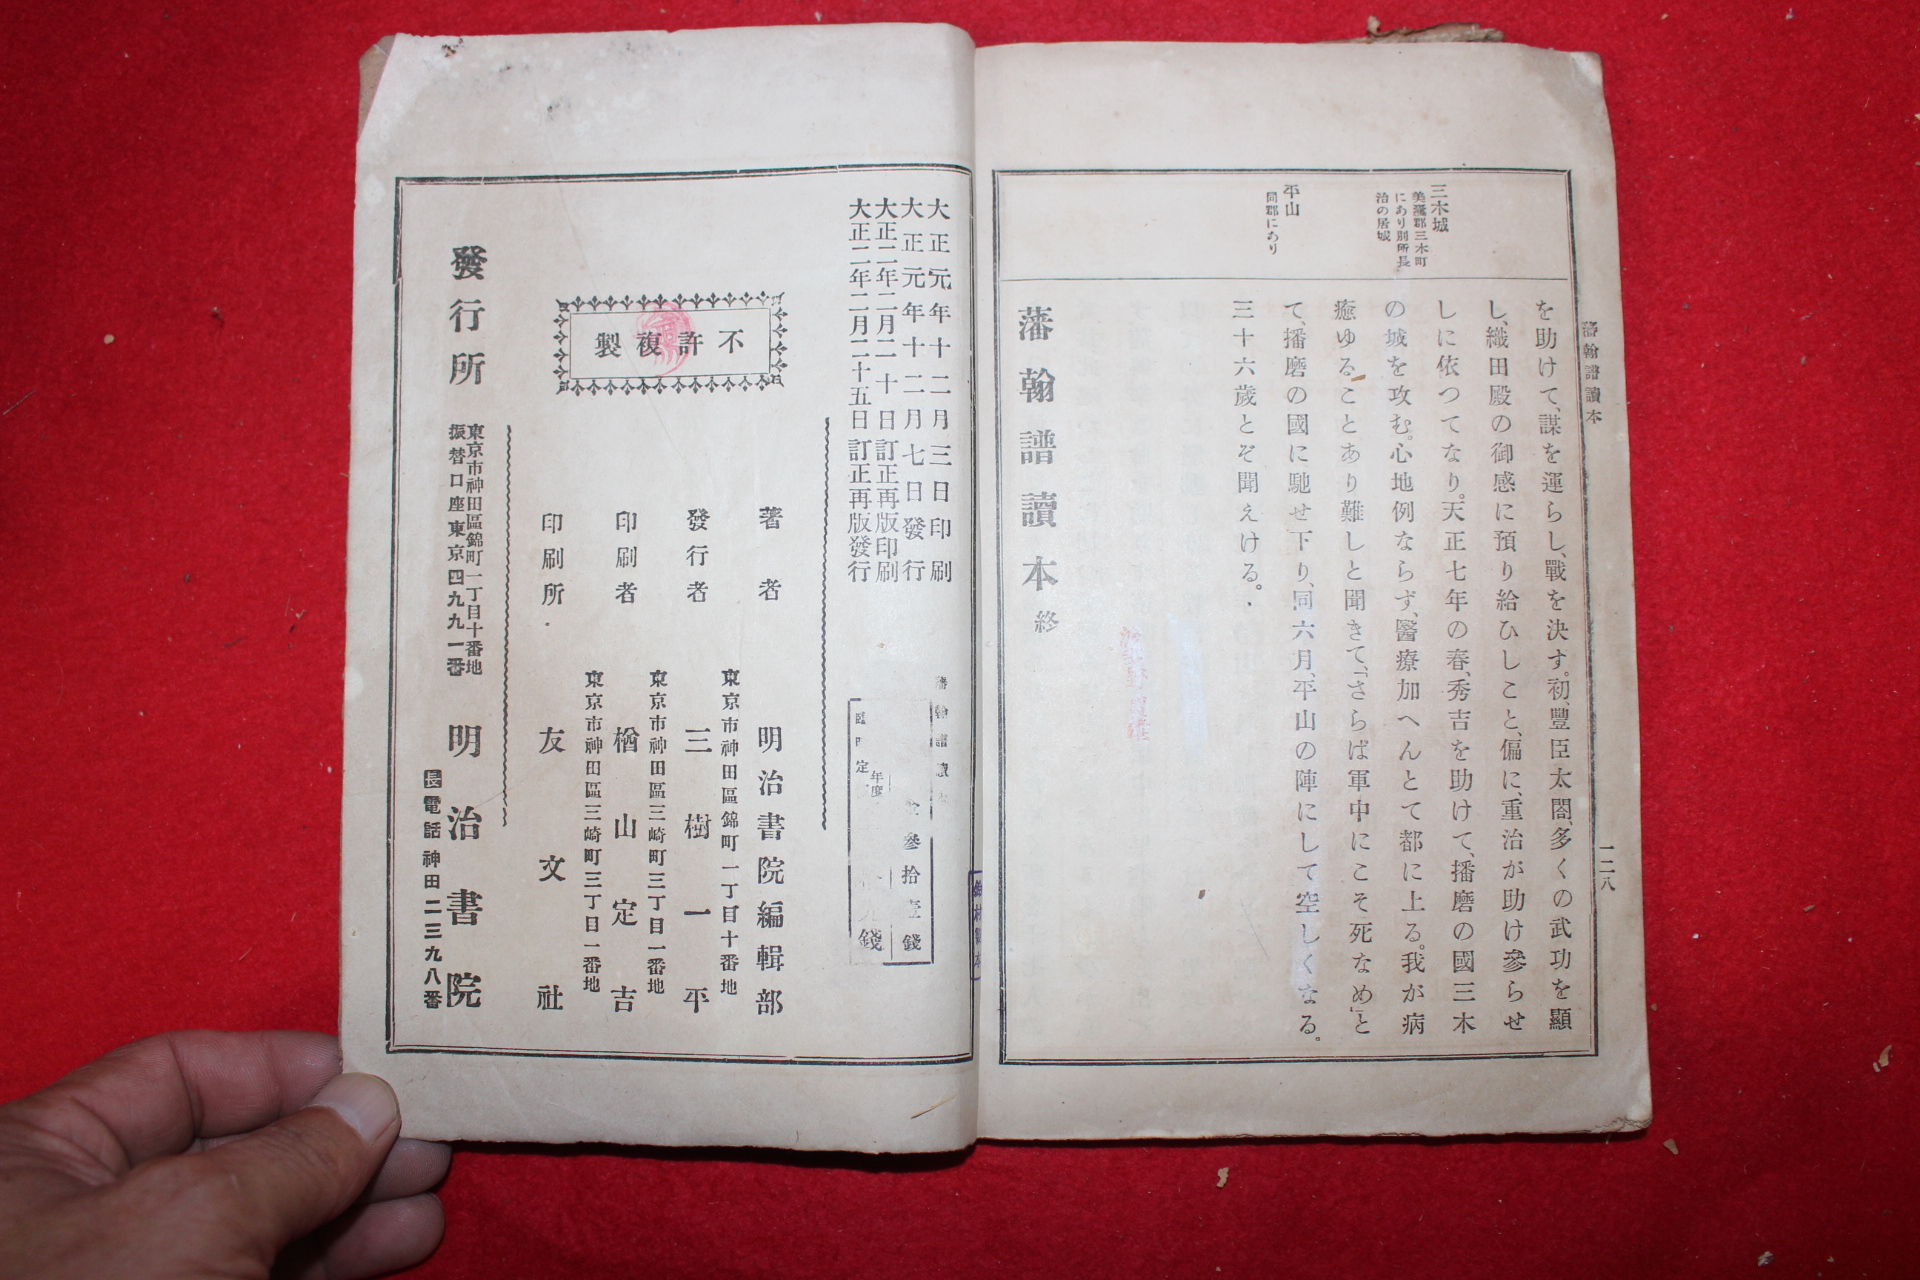 藩翰譜讀本
一二八
三木城
美囊郡三木町
にあり別所長
治の居城
平山
同郡にあり
を助けて、謀を運らし、戰を決す。初、豐臣太閤、多くの武功を顯
し、織田殿の御感に預り給ひしこと、偏に、重治が助け參らせ
しに依つてなり。天正七年の春、秀吉を助けて、播磨の國三木
の城を攻む。心地例ならず、醫療加へんとて都に上る。我が病
癒ゆることあり難しと聞きて、「さらば軍中にこそ死なめ」と
て、播磨の國に馳せ下り、同六月、平山の陣にして空しくなる。
三十六歲とぞ聞えける。
藩翰譜讀本終
大正元年十二月三日印刷
大正元年十二月七日發行
大正二年二月二十日訂正再版印刷
大正二年二月二十五日訂正再版發行
藩翰譜讀本
金參拾壹錢
年度
臨時定
錢
不許複製
著者
明治書院編輯部
東京市神田區錦町一丁目十番地
發行者
三樹一平
東京市神田區三崎町三丁目一番地
印刷者
楢山定吉
東京市神田區三崎町三丁目一番地
印刷所
友文社
發行所
東京市神田區錦町一丁目十番地
振替口座東京四九九一番
明治書院
長電話神田二三九八番